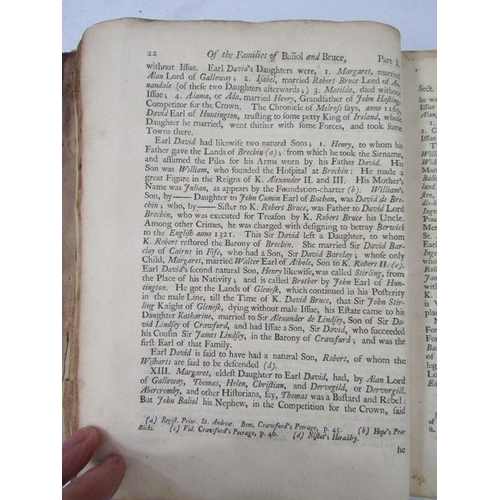 22 Of the Families of Baliol and Bruce, Part I.
without Issue. Earl David's Daughters were, 1. Margaret, married
Alan Lord of Galloway; 2. Isabel, married Robert Bruce Lord of An-
nandale (of these two Daughters afterwards;) 3. Motilda, died without
Issue; 4. Adama, or Ada, married Henry, Grandfather of John Hastings
Competitor for the Crown. The Chronicle of Melross says, anno 1165
David Earl of Huntington, trusting to some petty King of Ireland, whose
Daughter he married, went thither with some Forces, and took some
Towns there.
Earl David had likewise two natural Sons; 1. Henry, to whom his
Father gave the Lands of Brechin (a); from which he took the Sirname,
and assumed the Piles for his Arms worn by his Father David. His
Son was William, who founded the Hospital at Brechin: He made a
great Figure in the Reigns of K. Alexander II. and III. His Mother's
Name was Julian, as appears by the Foundation-charter (b). William's
Son, by —— Daughter to John Cumin Earl of Buchan, was David de Bre-
chin; who, by —— Sister to K. Robert Bruce, was Father to David Lord
Brechin, who was executed for Treason by K. Robert Bruce his Uncle.
Among other Crimes, he was charged with designing to betray Berwick
to the English anno 1321. This Sir David left a Daughter, to whom
K. Robert restored the Barony of Brechin. She married Sir David Bar-
clay of Cairns in Fife, who had a Son, Sir David Barclay; whose only
Child, Margaret, married Walter Earl of Athole, Son to K. Robert II. (c).
Earl David's second natural Son, Henry likewise, was called Stirling, from
the Place of his Nativity; and is called Brother by John Earl of Hun-
tington. He got the Lands of Glenesk, which continued in his Posterity
in the male Line, till the Time of K. David Bruce, that Sir John Stir-
ling Knight of Glenesk, dying without male Issue, his Estate came to his
Daughter Katharine, married to Sir Alexander de Lindsey, Son of Sir Da-
vid Lindsey of Crawfurd, and had Issue a Son, Sir David, who succeeded
his Cousin Sir James Lindsey, in the Barony of Crawfurd; and was the
first Earl of that Family.
Earl David is said to have had a natural Son, Robert, of whom the
Wisharts are said to be descended (d).
XIII. Margaret, eldest Daughter to Earl David, had, by Alan Lord
of Galloway, Thomas, Helen, Christian, and Dervegild, or Dervorgill.
Abercromby, and other Historians, say, Thomas was a Bastard and Rebel:
But John Baliol his Nephew, in the Competition for the Crown, said
(a) Regist. Prior. St. Andreæ. Item, Crawfurd's Peerage, p. 45. (b) Hope's Pra-
cticks. (c) Vid. Crawfurd's Peerage, p. 46. (d) Nisbet's Heraldry.
he